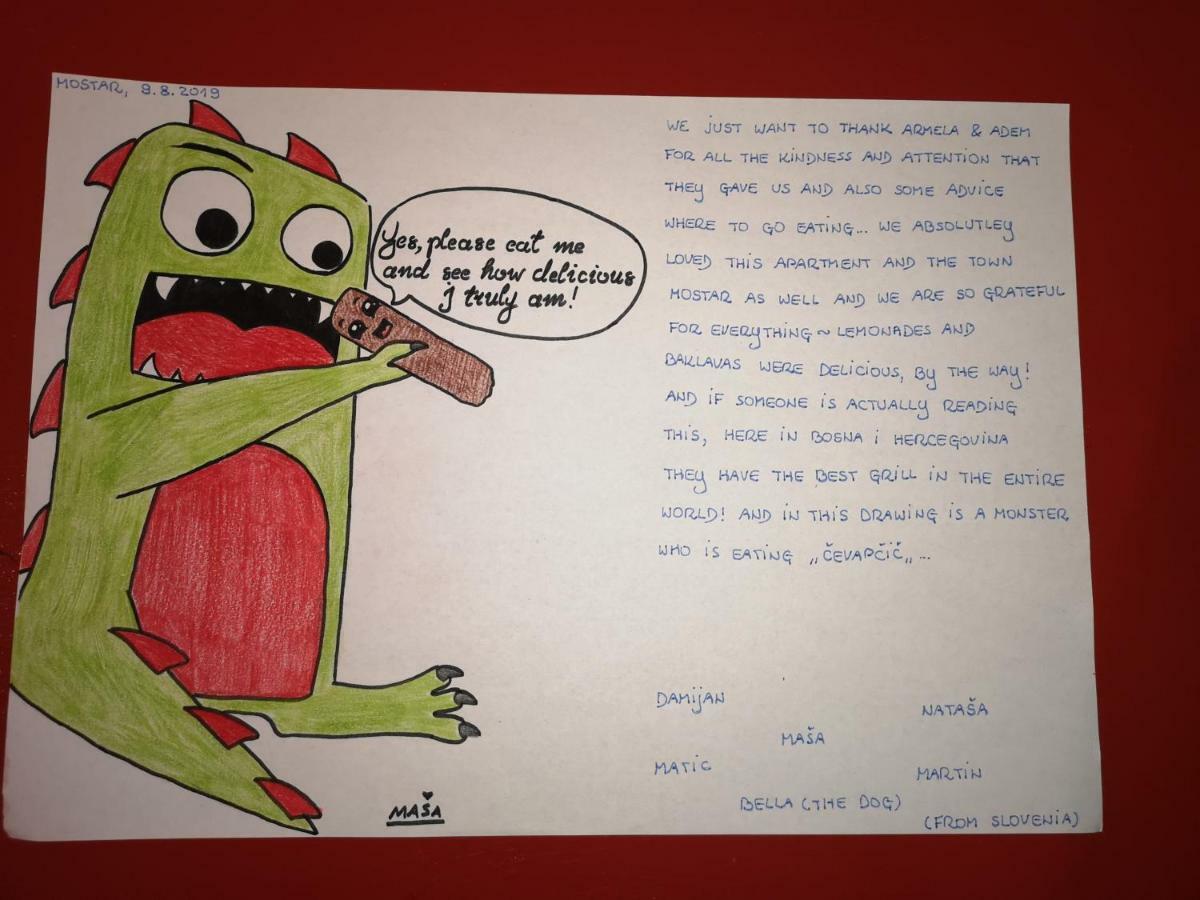 MOSTAR, 9.8.2019
Yes, please eat me
and see how delicious
I truly am!
MAŠA
WE JUST WANT TO THANK ARMELA & ADEM
FOR ALL THE KINDNESS AND ATTENTION THAT
THEY GAVE US AND ALSO SOME ADVICE
WHERE TO GO EATING... WE ABSOLUTLEY
LOVED THIS APARTMENT AND THE TOWN
MOSTAR AS WELL AND WE ARE SO GRATEFUL
FOR EVERYTHING ~ LEMONADES AND
BAKLAVAS WERE DELICIOUS, BY THE WAY!
AND IF SOMEONE IS ACTUALLY READING
THIS, HERE IN BOSNA I HERCEGOVINA
THEY HAVE THE BEST GRILL IN THE ENTIRE
WORLD! AND IN THIS DRAWING IS A MONSTER
WHO IS EATING „ČEVAPČIČ„...
DAMIJAN
NATAŠA
MAŠA
MATIC
MARTIN
BELLA (THE DOG)
(FROM SLOVENIA)